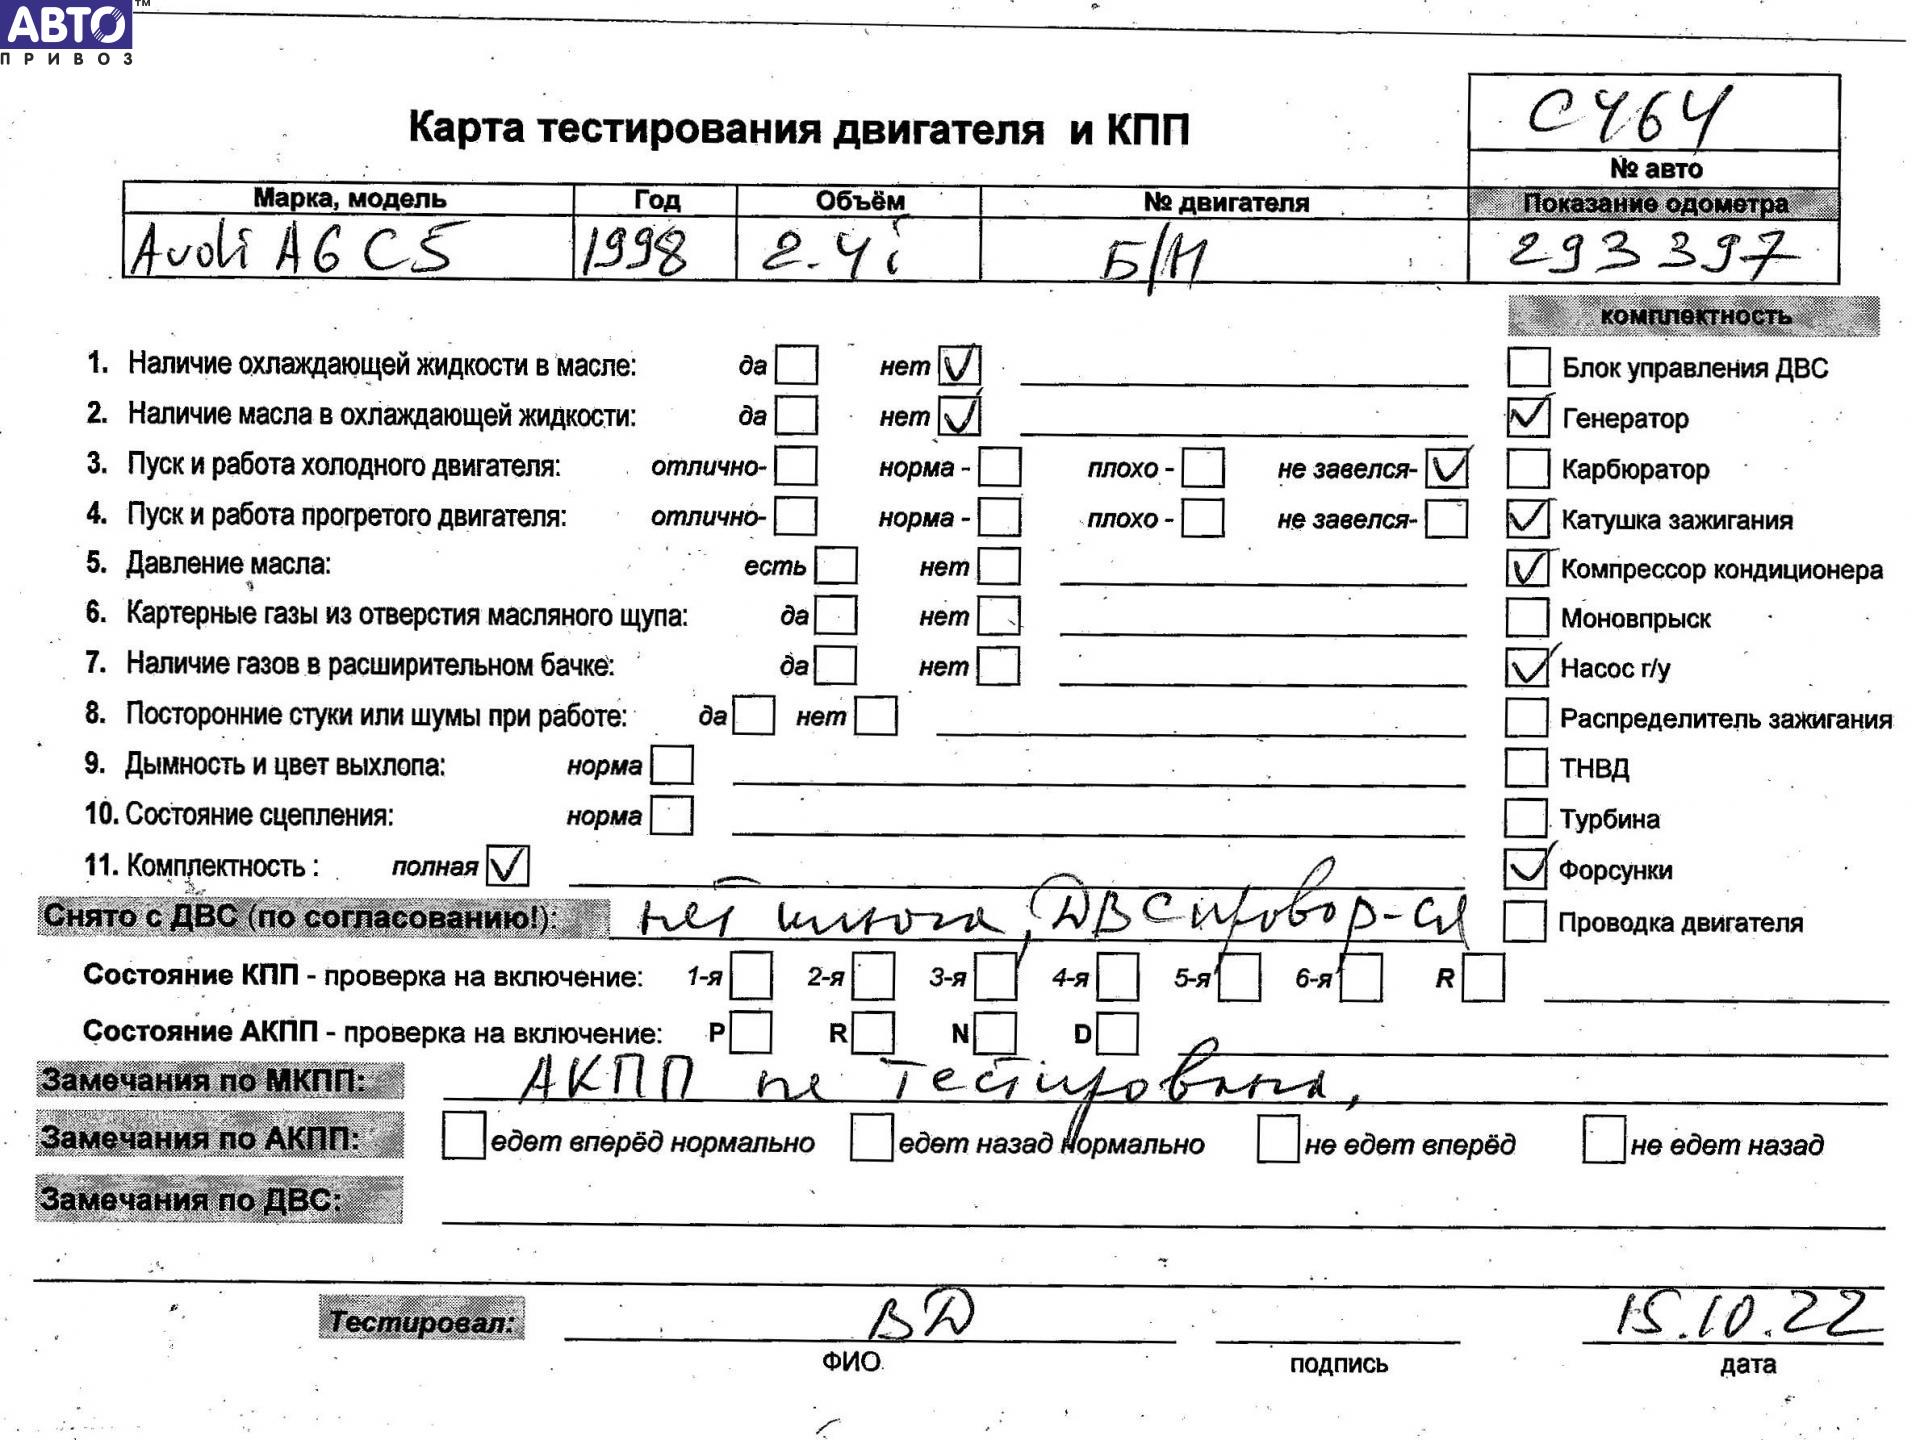 АВТО™
ПРИВОЗ
Карта тестирования двигателя и КПП
С464
№ авто
Марка, модель Год Объём № двигателя Показание одометра
Audi A6 C5 1998 2.4i Б/Н 293397
комплектность
1. Наличие охлаждающей жидкости в масле: да нет ✓
Блок управления ДВС
2. Наличие масла в охлаждающей жидкости: да нет ✓
✓ Генератор
3. Пуск и работа холодного двигателя: отлично- норма - плохо - не завелся- ✓
Карбюратор
4. Пуск и работа прогретого двигателя: отлично- норма - плохо - не завелся-
✓ Катушка зажигания
5. Давление масла: есть нет
✓ Компрессор кондиционера
6. Картерные газы из отверстия масляного щупа: да нет
Моновпрыск
7. Наличие газов в расширительном бачке: да нет
✓ Насос г/у
8. Посторонние стуки или шумы при работе: да нет
Распределитель зажигания
9. Дымность и цвет выхлопа: норма
ТНВД
10. Состояние сцепления: норма
Турбина
11. Комплектность : полная ✓
✓ Форсунки
Снято с ДВС (по согласованию!): нет ключа, ДВС провор-ся
Проводка двигателя
Состояние КПП - проверка на включение: 1-я 2-я 3-я 4-я 5-я 6-я R
Состояние АКПП - проверка на включение: P R N D
Замечания по МКПП: АКПП не тестирована,
Замечания по АКПП: едет вперёд нормально едет назад нормально не едет вперёд не едет назад
Замечания по ДВС:
Тестировал: ВД 15.10.22
ФИО подпись дата